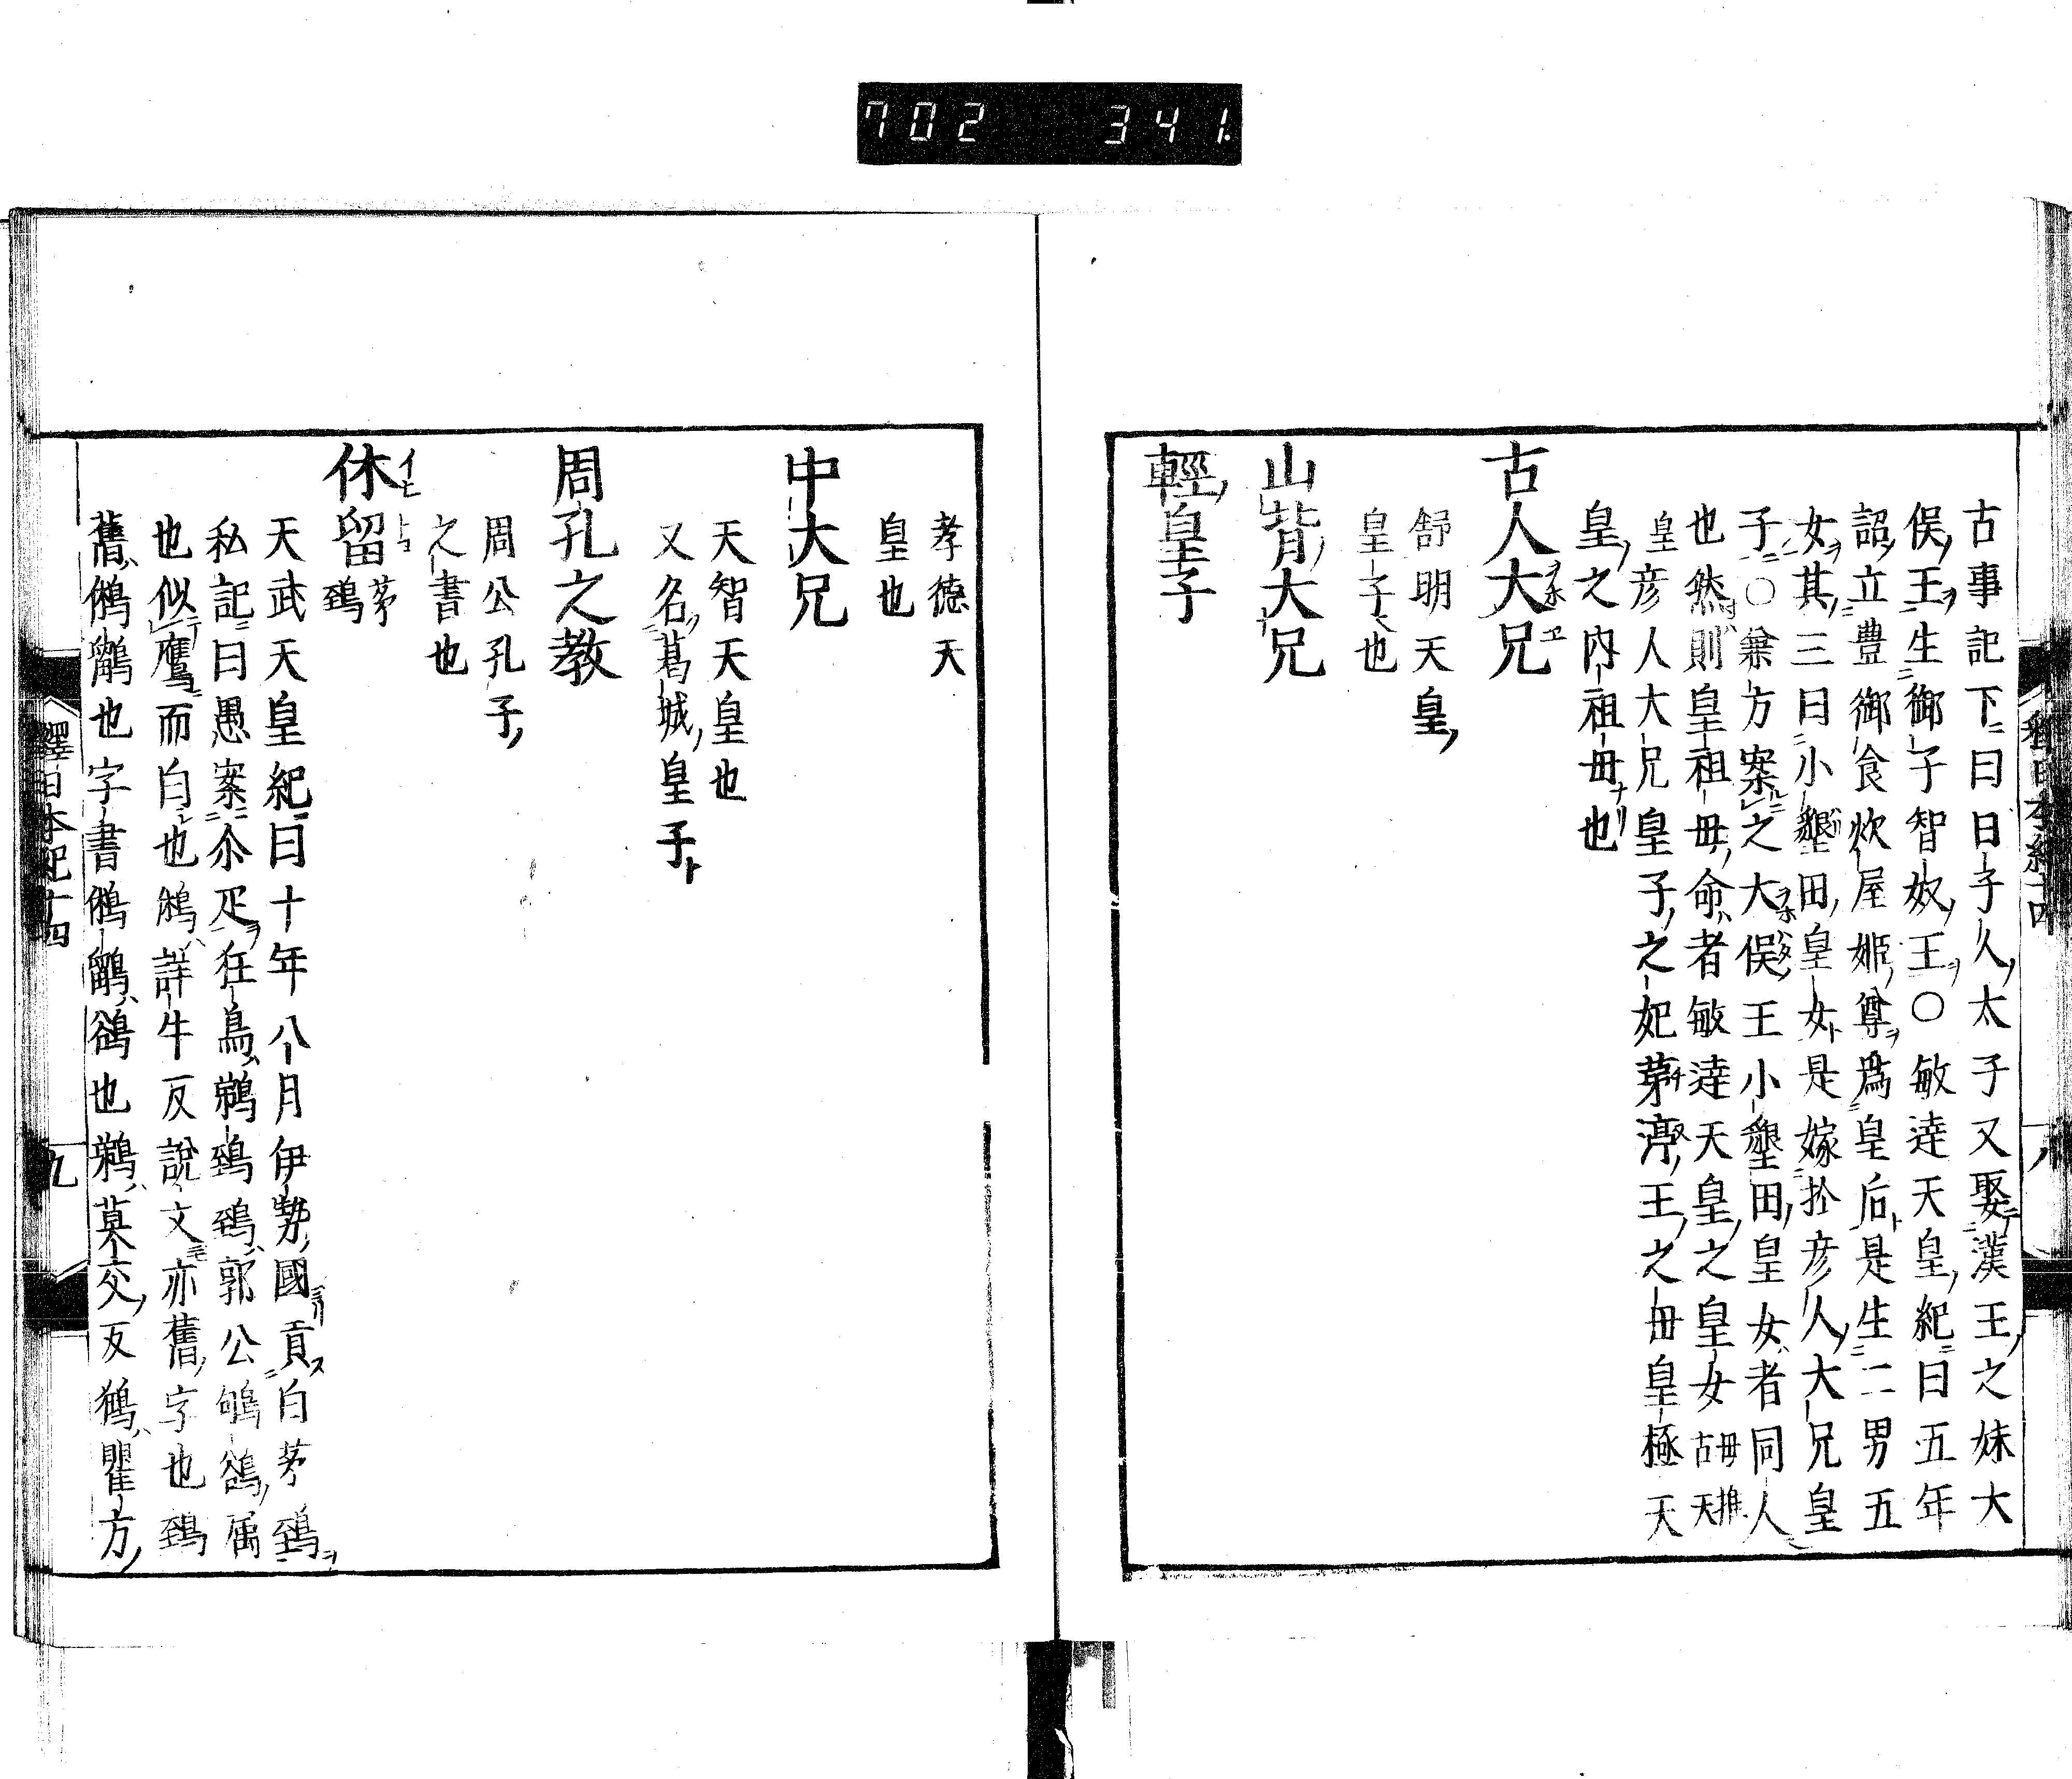 702 341
古事記下曰日子人太子又娶漢王之妹大
俣王生御子智奴王○敏達天皇紀曰五年
詔立豊御食炊屋姫尊為皇后是生二男五
女其三曰小墾田皇女是嫁於彦人大兄皇
子○兼方案之大俣王小墾田皇女者同人
也然則皇祖母命者敏達天皇之皇女母推古天
皇彦人大兄皇子之妃茅渟王之母皇極天
皇之内祖母也
古人大兄
舒明天皇
皇子也
山背大兄
輕皇子
孝德天
皇也
中大兄
天智天皇也
又名葛城皇子
周孔之教
周公孔子
之書也
休留茅鵄
天武天皇紀曰十年八月伊勢國貢白茅鵄
私記曰愚案尒疋狂鳥鵄郭公鴝鵒属
也似鷹而白也詳牛反說文亦舊字也鵄
舊鵂鶹也字書鵂鶹鵒也莫交反瞿方
釋日本紀十四
九